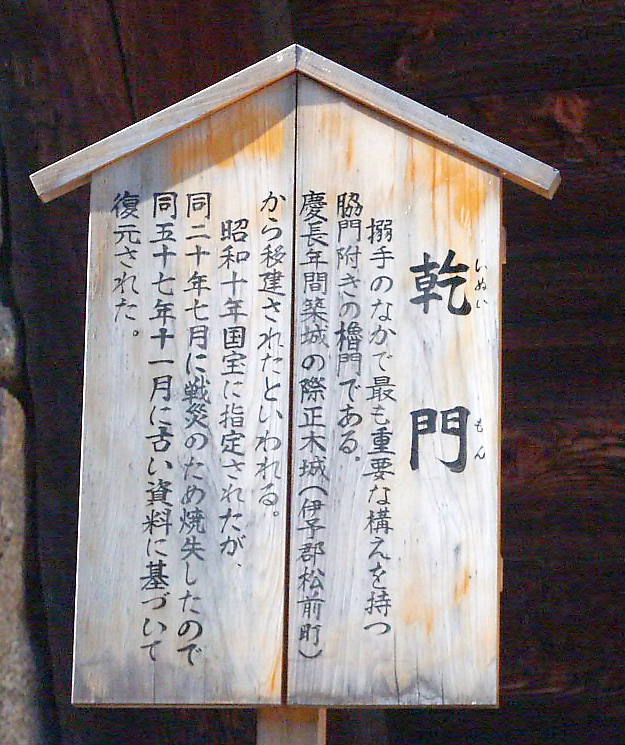 乾門
いぬいもん
搦手のなかで最も重要な構えを持つ
脇門附きの櫓門である。
慶長年間築城の際正木城(伊予郡松前町)
から移建されたといわれる。
昭和十年国宝に指定されたが、
同二十年七月に戦災のため焼失したので
同五十七年十一月に古い資料に基づいて
復元された。